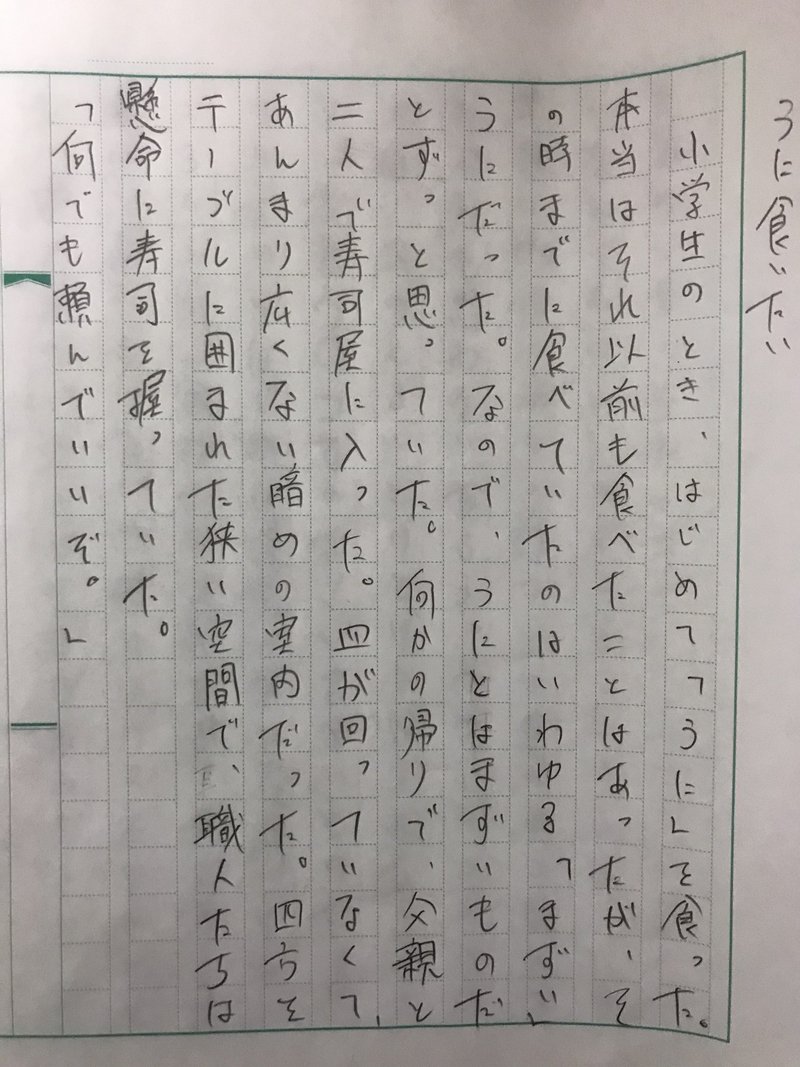 うに食いたい
小学生のとき、はじめて「うに」を食った。
本当はそれ以前も食べたことはあったが、そ
の時までに食べていたのはいわゆる「まずい」
うにだった。なので、うにとはまずいものだ
とずっと思っていた。何かの帰りで、父親と
二人で寿司屋に入った。皿が回っていなくて、
あんまり広くない暗めの室内だった。四方を
テーブルに囲まれた狭い空間で、職人たちは
懸命に寿司を握っていた。
「何でも頼んでいいぞ。」